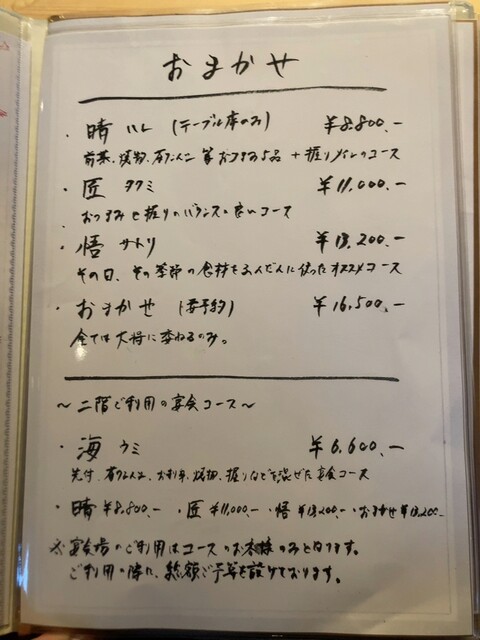 おまかせ
・晴 ハレ (テーブル席のみ) ¥8,800.-
前菜、焼物、茶ワンムシ 等 おつまみ5品 + 握りメインのコース
・匠 タクミ ¥11,000.-
おつまみと握りのバランスの良いコース
・悟 サトリ ¥13,200.-
その日、その季節の食材をふんだんに使ったオススメコース
・おまかせ (要予約) ¥16,500.-
全ては大将に委ねるのみ。
〜二階ご利用の宴会コース〜
・海 ウミ ¥6,600.-
先付、茶ワンムシ、お刺身、焼物、握りなどを混ぜた宴会コース
・晴 ¥8,800.- ・匠 ¥11,000.- ・悟 ¥13,200.- ・おまかせ
※宴会場のご利用はコースのお客様のみとなります。
ご利用の際に、総額ご予算を設けております。